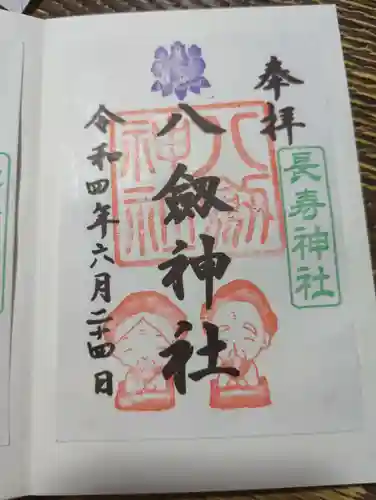 奉拝
長寿神社
八劔神社
八剱神社
令和四年六月二十四日